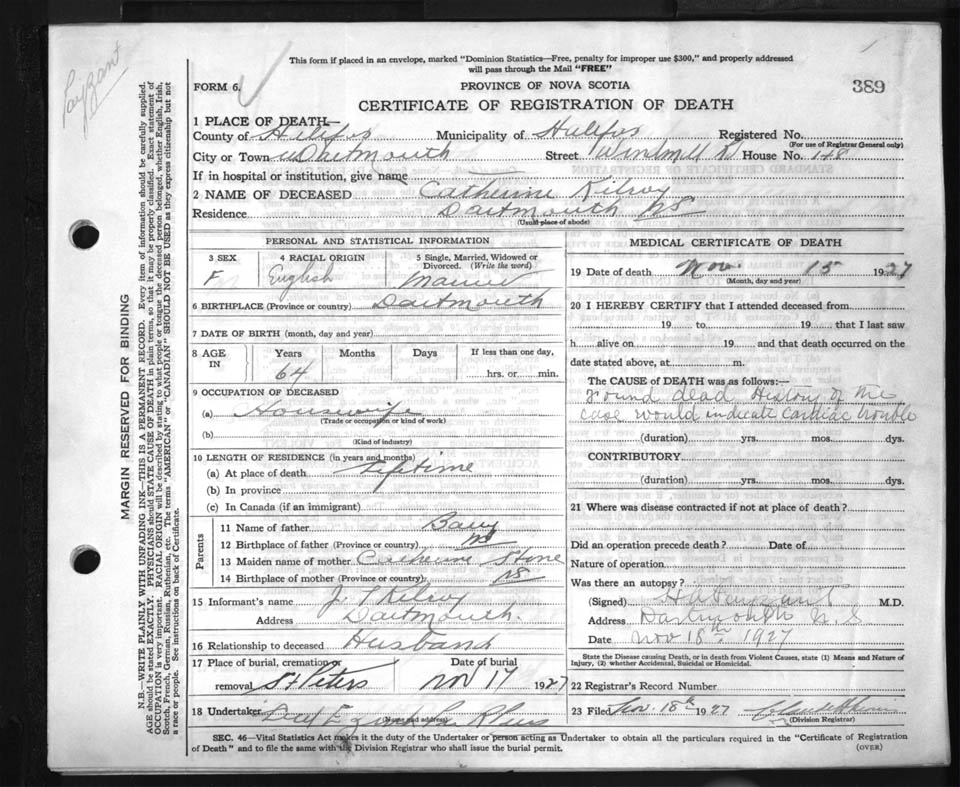 This form if placed in an envelope, marked "Dominion Statistics—Free, penalty for improper use $300," and properly addressed
will pass through the Mail "FREE"
FORM 6.
PROVINCE OF NOVA SCOTIA
389
CERTIFICATE OF REGISTRATION OF DEATH
Payzant
MARGIN RESERVED FOR BINDING
N.B.—WRITE PLAINLY WITH UNFADING INK—THIS IS A PERMANENT RECORD. Every item of information should be carefully supplied.
AGE should be stated EXACTLY. PHYSICIANS should STATE CAUSE OF DEATH in plain terms, so that it may be properly classified. Exact statement of
OCCUPATION is very important. RACIAL ORIGIN will be described by stating to what people or tongue the deceased person belonged, whether English, Irish,
Scotch, French, German, Russian, Ruthenian, etc. The terms "AMERICAN" or "CANADIAN" SHOULD NOT BE USED as they express citizenship but not
a race or people. See instructions on back of Certificate.
1 PLACE OF DEATH—
County of Halifax Municipality of Halifax Registered No.
(For use of Registrar General only)
City or Town Dartmouth Street Windmill Rd House No. 148
If in hospital or institution, give name
2 NAME OF DECEASED Catherine Kilroy
Residence Dartmouth NS
(Usual place of abode)
PERSONAL AND STATISTICAL INFORMATION
3 SEX F
4 RACIAL ORIGIN English
5 Single, Married, Widowed or
Divorced. (Write the word)
Married
6 BIRTHPLACE (Province or country) Dartmouth
7 DATE OF BIRTH (month, day and year)
8 AGE IN
Years Months Days If less than one day,
64 hrs. or min.
9 OCCUPATION OF DECEASED
(a) Housewife
(Trade or occupation or kind of work)
(b)
(Kind of industry)
10 LENGTH OF RESIDENCE (in years and months)
(a) At place of death Lifetime
(b) In province
(c) In Canada (if an immigrant)
Parents
11 Name of father Barry
12 Birthplace of father (Province or country) NS
13 Maiden name of mother Catherine Stone
14 Birthplace of mother (Province or country) NS
15 Informant's name J. Kilroy
Address Dartmouth.
16 Relationship to deceased Husband
17 Place of burial, cremation Date of burial
removal St Peters Nov 17 1927
18 Undertaker
(Name and address)
MEDICAL CERTIFICATE OF DEATH
19 Date of death Nov. 15 1927
(Month, day and year)
20 I HEREBY CERTIFY that I attended deceased from
19 to 19 that I last saw
h alive on 19 and that death occurred on the
date stated above, at m.
The CAUSE OF DEATH was as follows:—
Found dead History of the
case would indicate cardiac trouble
(duration) yrs. mos. dys.
CONTRIBUTORY
(duration) yrs. mos. dys.
21 Where was disease contracted if not at place of death?
Did an operation precede death? Date of
Nature of operation
Was there an autopsy?
(Signed) Payzant M.D.
Address Dartmouth N.S
Date Nov 18th 1927
State the Disease causing Death, or in death from Violent Causes, state (1) Means and Nature of
Injury, (2) whether Accidental, Suicidal or Homicidal.
22 Registrar's Record Number
23 Filed Nov. 18th 1927
(Division Registrar)
SEC. 46—Vital Statistics Act makes it the duty of the Undertaker or person acting as Undertaker to obtain all the particulars required in the "Certificate of Registration
of Death" and to file the same with the Division Registrar who shall issue the burial permit.
(OVER)